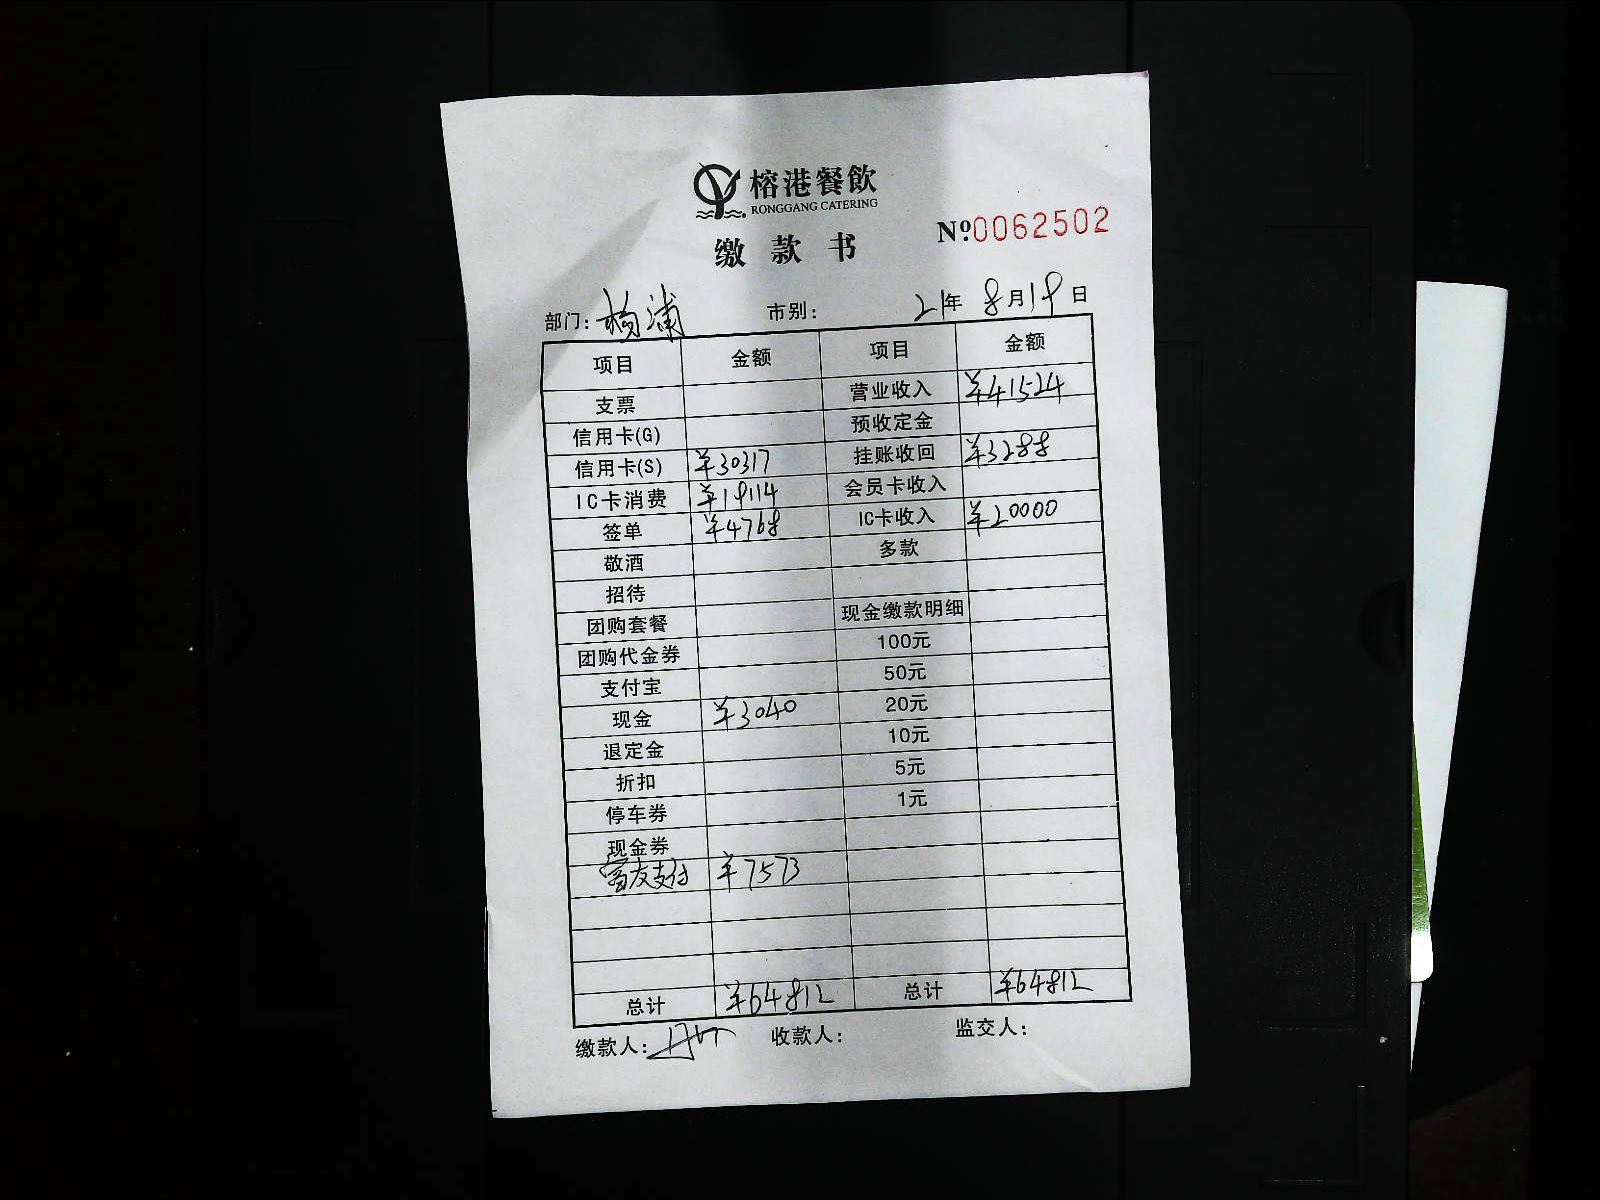 榕港餐飲
RONGGANG CATERING
缴款书
Nº:0062502
部门: 杨浦 市别: 21年 8月19日
项目 金额 项目 金额
支票 营业收入 ¥41524
信用卡(G) 预收定金
信用卡(S) ¥30317 挂账收回 ¥3288
IC卡消费 ¥19114 会员卡收入
签单 ¥4768 IC卡收入 ¥20000
敬酒 多款
招待
团购套餐 现金缴款明细
团购代金券 100元
支付宝 50元
现金 ¥3040 20元
退定金 10元
折扣 5元
停车券 1元
现金券
富友支付 ¥7573
总计 ¥64812 总计 ¥64812
缴款人: 收款人: 监交人: